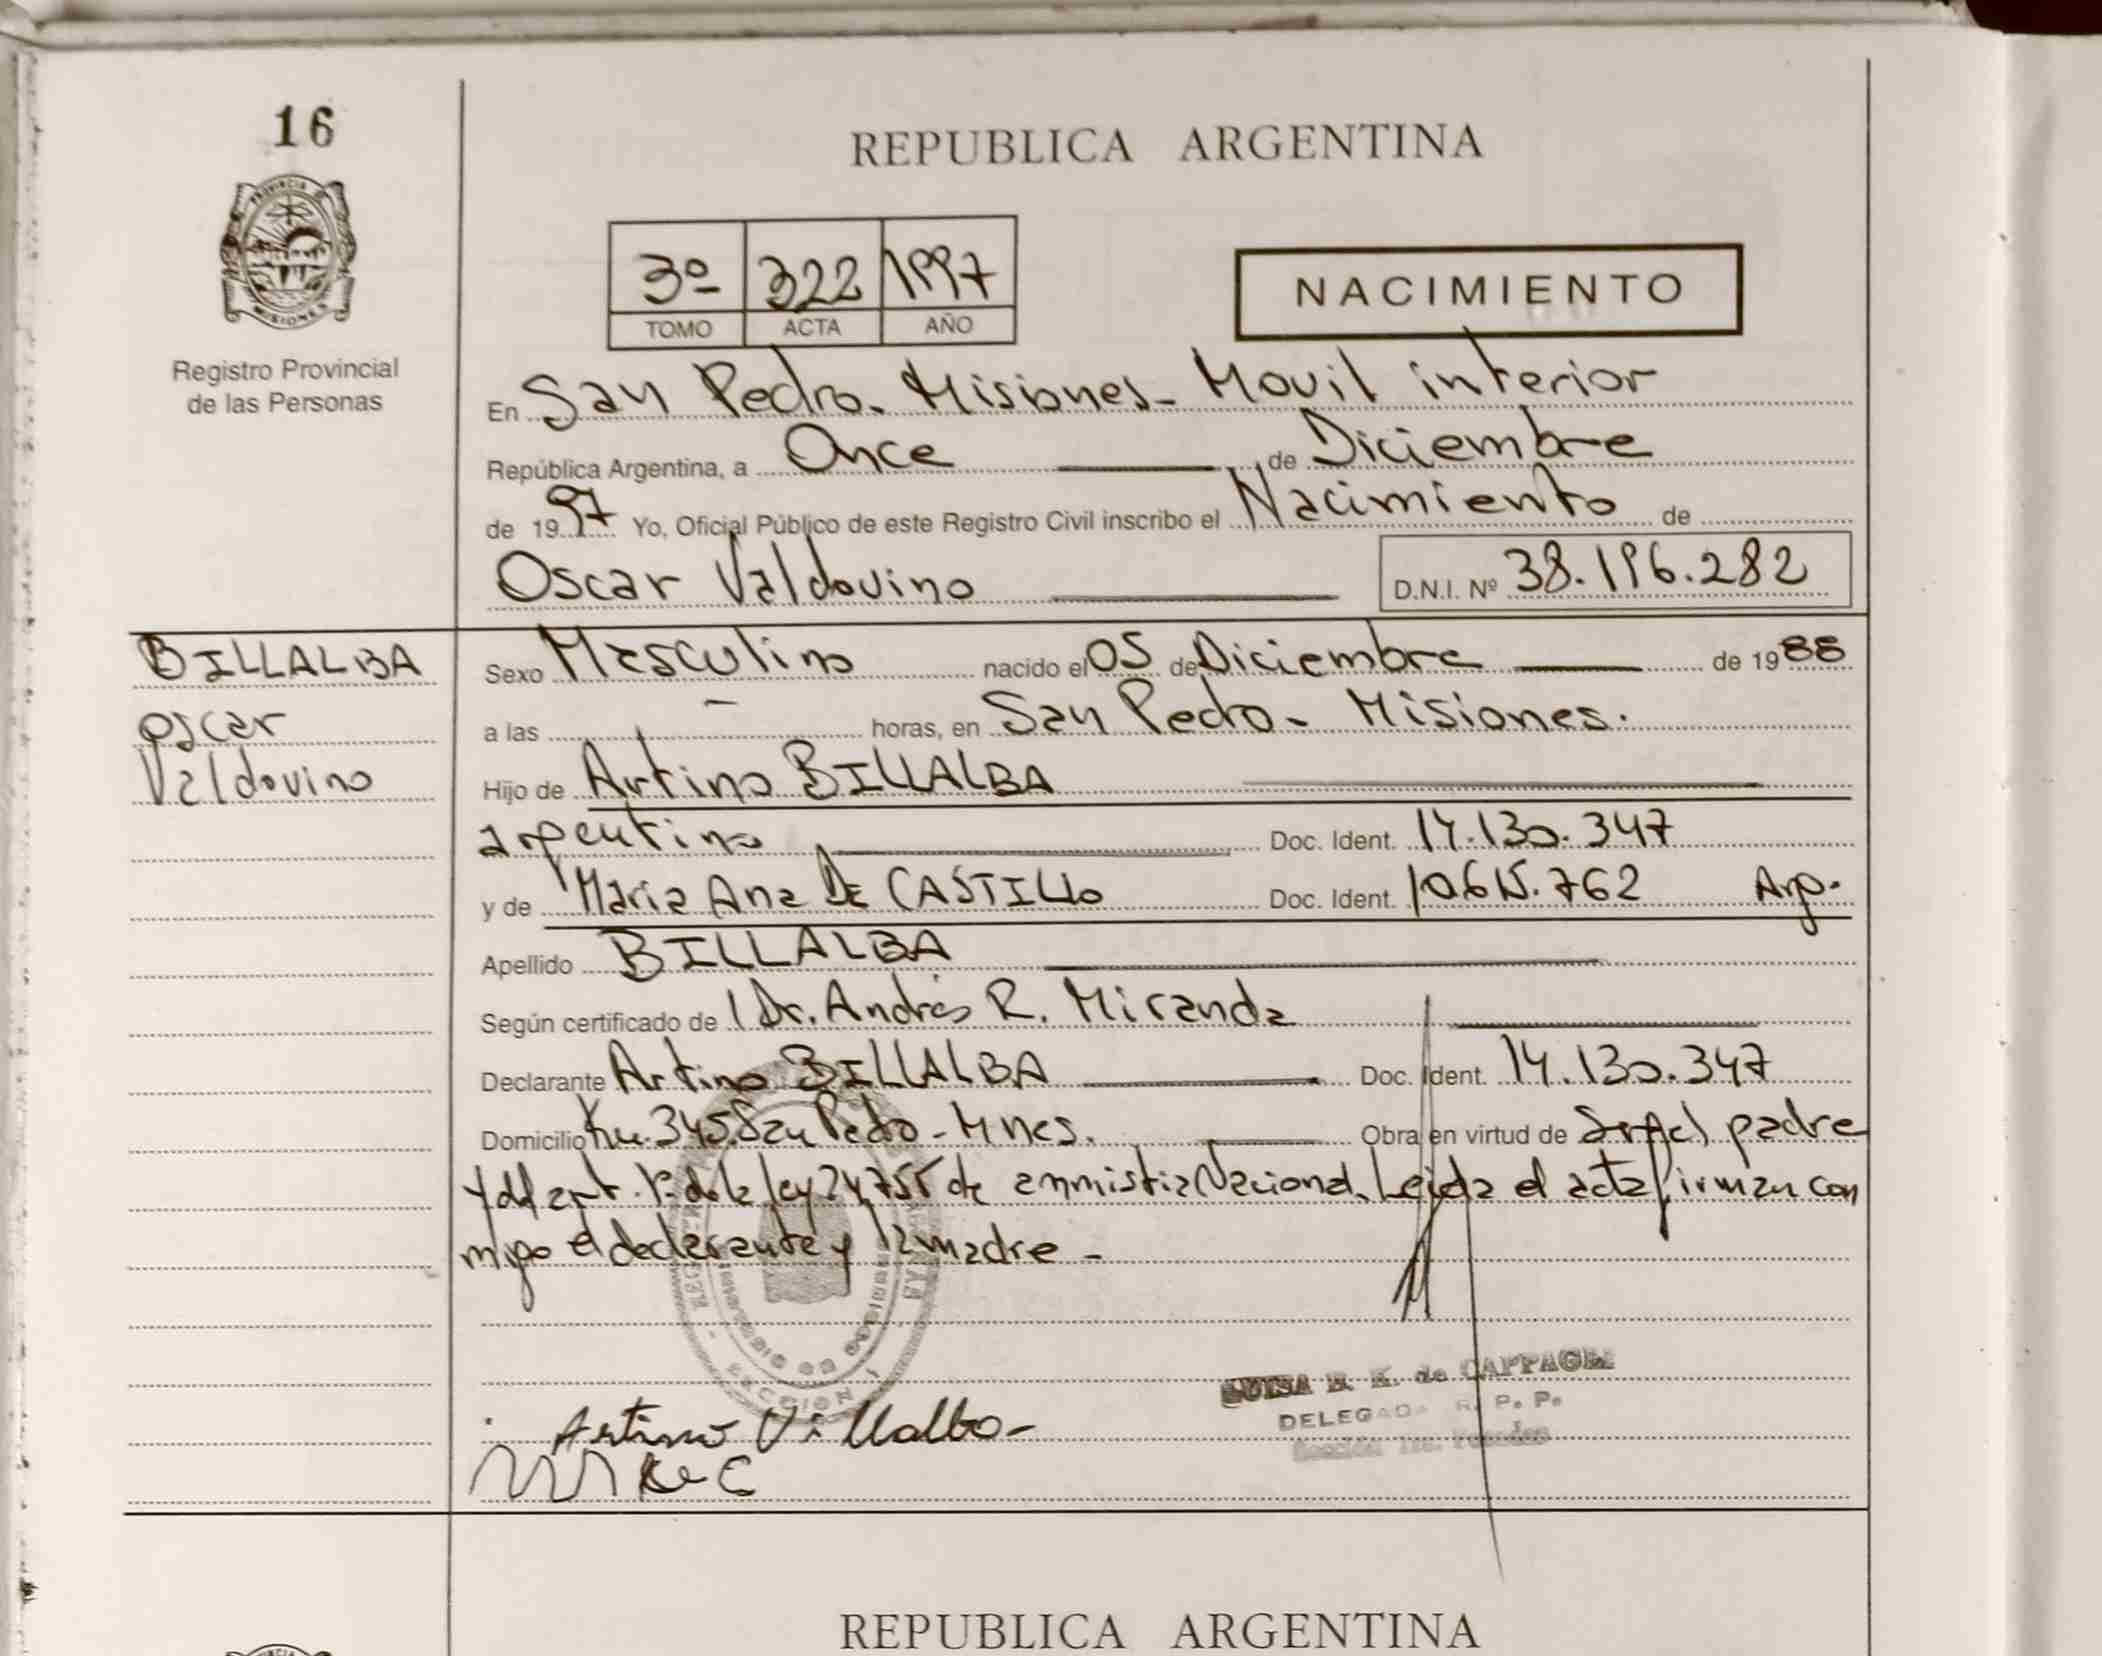 16
REPUBLICA ARGENTINA
3º 322 1997
TOMO ACTA AÑO
NACIMIENTO
PROVINCIA DE
MISIONES
Registro Provincial
de las Personas
En San Pedro - Misiones - Movil interior
República Argentina, a Once de Diciembre
de 1997 Yo, Oficial Público de este Registro Civil inscribo el Nacimiento de
Oscar Valdovino D.N.I. Nº 38.196.282
BILLALBA
Oscar
Valdovino
Sexo Masculino nacido el 05 de Diciembre de 1988
a las - horas, en San Pedro - Misiones.
Hijo de Artino BILLALBA
argentino Doc. Ident. 14.130.347
y de Maria Ana DE CASTILLO Doc. Ident. 10.615.762 Arg.
Apellido BILLALBA
Según certificado de Dr. Andrés R. Miranda
Declarante Artino BILLALBA Doc. Ident. 14.130.347
Domicilio Km. 345 San Pedro - Mnes. Obra en virtud de ser el padre
y del art. 1º de la ley 24.755 de amnistia Nacional. Leida el acta firman con
migo el declarante y la madre -
Artino Villalba -
de CAPPAGLI
DELEGADA R. P. P.
Sección 1ra. Posadas
SECCION 1
REPUBLICA ARGENTINA